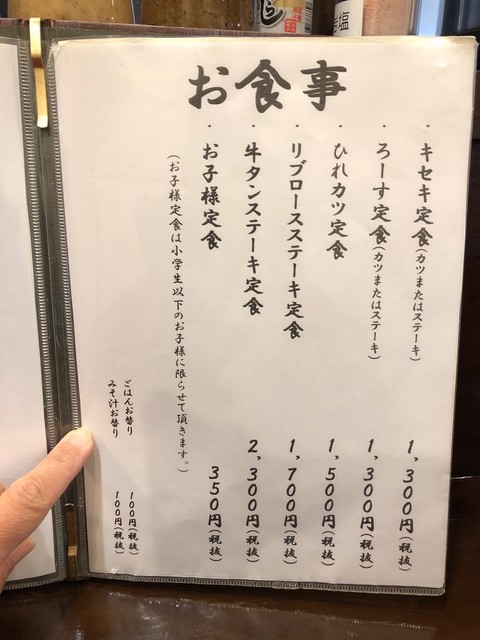 お食事
・キセキ定食(カツまたはステーキ) 1,300円(税抜)
・ろーす定食(カツまたはステーキ) 1,300円(税抜)
・ひれカツ定食 1,500円(税抜)
・リブロースステーキ定食 1,700円(税抜)
・牛タンステーキ定食 2,300円(税抜)
・お子様定食 350円(税抜)
(お子様定食は小学生以下のお子様に限らせて頂きます。)
ごはんお替り 100円(税抜)
みそ汁お替り 100円(税抜)